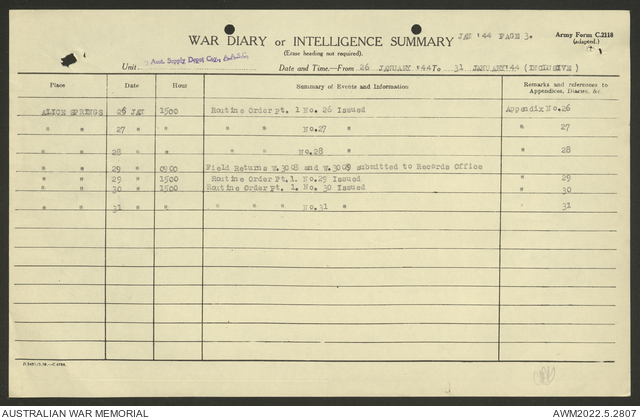 WAR DIARY or INTELLIGENCE SUMMARY
(Erase heading not required).
JAN '44 PAGE 3.
Army Form C.2118
(adapted.)
Unit
Aust. Supply Depot Coy. A.A.S.C.
Date and Time.—From 26 JANUARY '44 To 31 JANUARY '44 (INCLUSIVE)
Place Date Hour Summary of Events and Information Remarks and references to
Appendices, Diaries, &c.
ALICE SPRINGS 26 JAN 1500 Routine Order pt. 1 No. 26 Issued Appendix No.26
" " 27 " " " " No.27 " " 27
" " 28 " " " " No.28 " " 28
" " 29 " 0900 Field Returns W.3008 and W.3009 submitted to Records Office
" " 29 " 1500 Routine Order Pt. 1. No.29 Issued " 29
" " 30 " 1500 Routine Order Pt. 1. No. 30 Issued " 30
" " 31 " " " " No.31 " " 31
AUSTRALIAN WAR MEMORIAL
AWM2022.5.2807